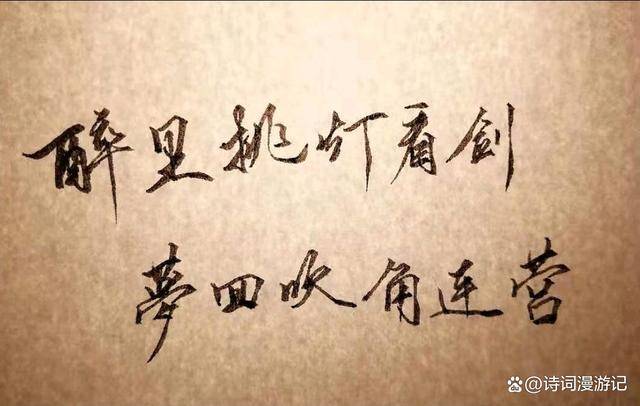 醉里挑灯看剑
夢回吹角连营
@诗词漫游记